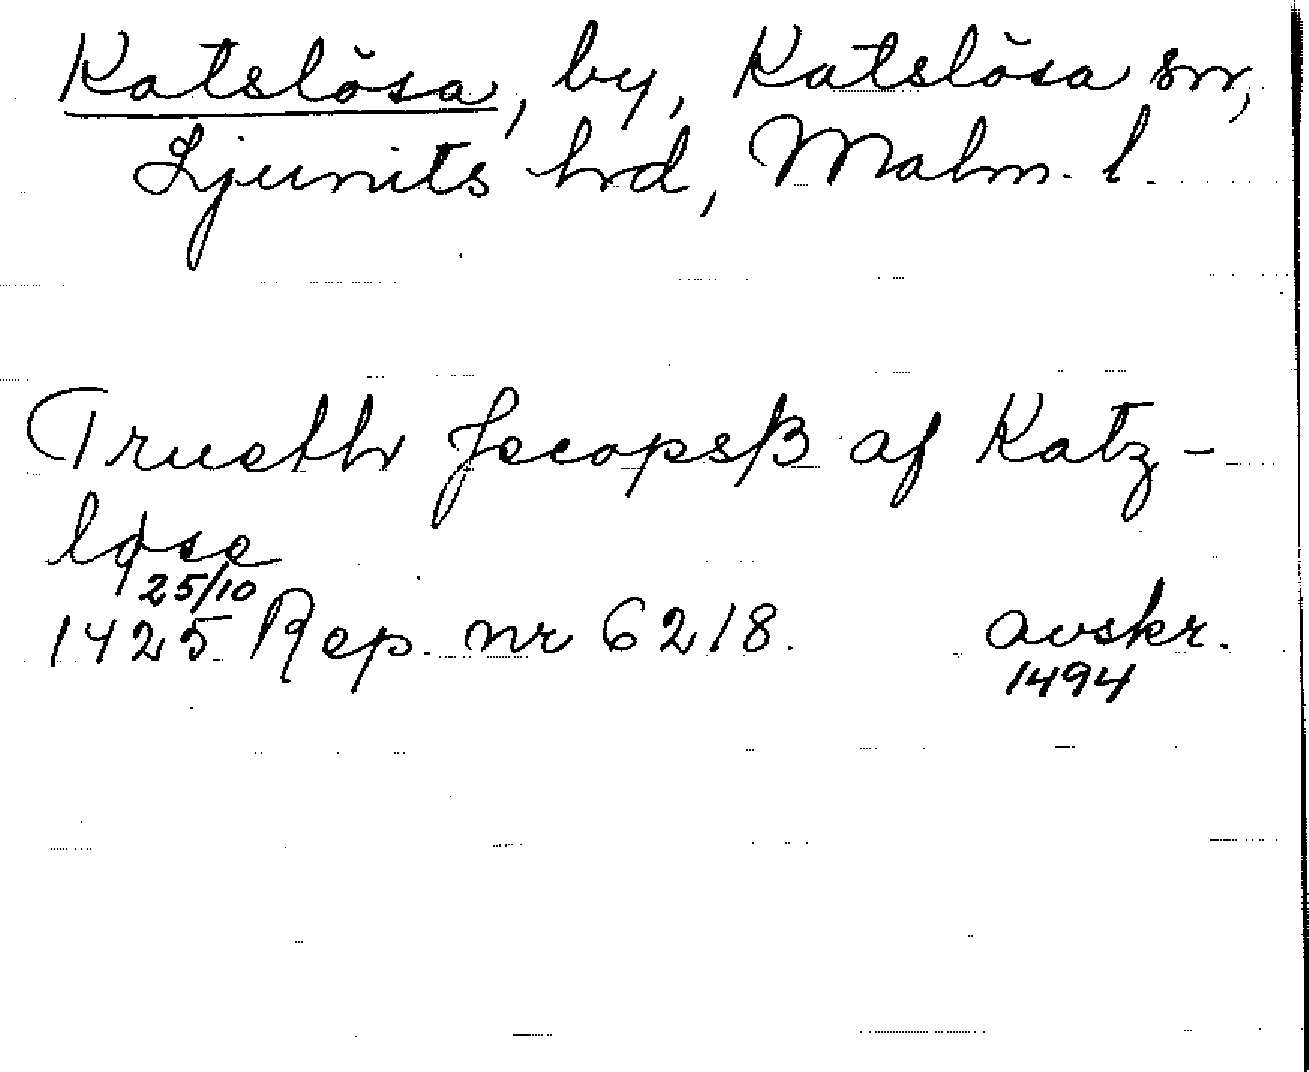 Katslösa, by, Katslösa sn,
Ljunits hd, Malm. l.
Trueth Jecopsß af Katz-
løse
25/10
1425 Rep. nr 6218. avskr.
1494